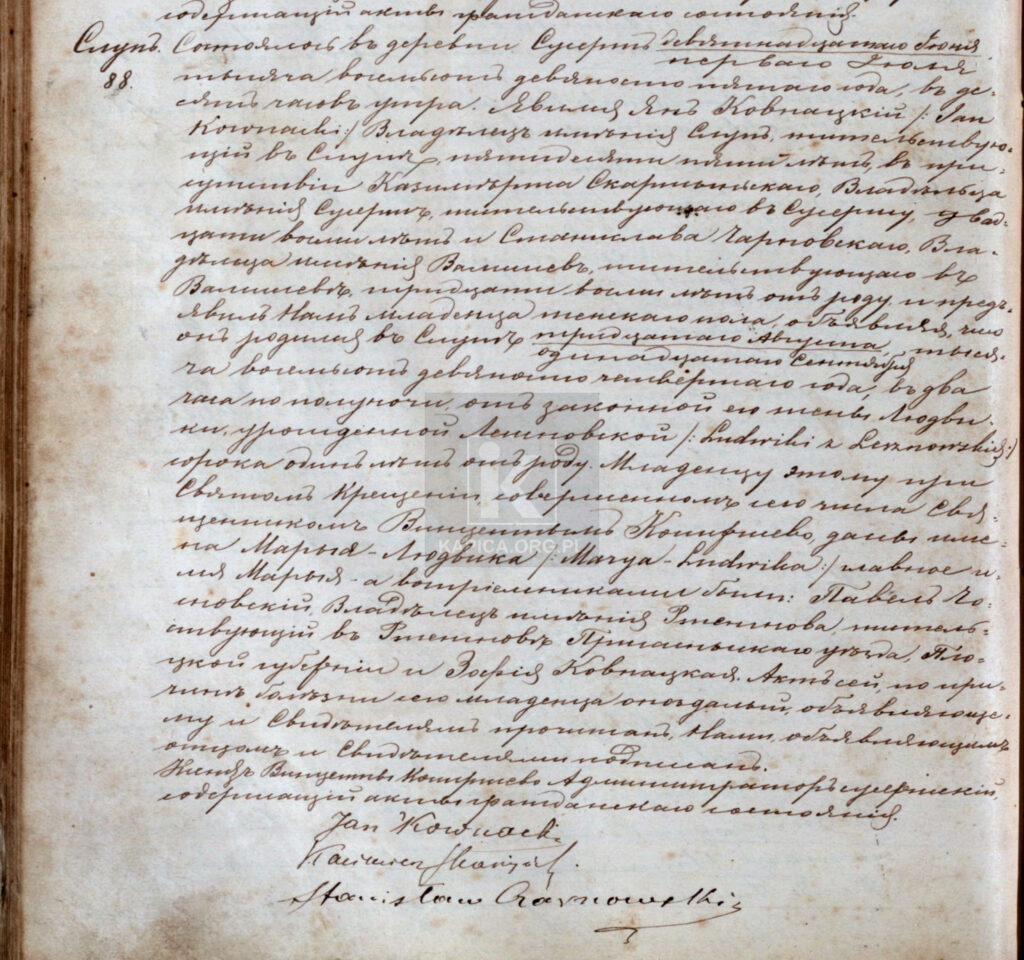 содержащій акты гражданскаго состоянія.
Слупъ. Состоялось въ деревни Сусерпъ девятнадцатаго Іюня
88. перваго Іюля
тысяча восемьсотъ девяносто пятаго года, въ де-
сять часовъ утра. Явился Янъ Ковнацкій /: Jan
Kownacki :/ Владѣлецъ имѣнія Слупъ, жительствую-
щій въ Слупѣ, пятидесяти пяти лѣтъ, въ при-
сутствіи Казимѣржа Скаржинскаго, Владѣльца
имѣнія Сусерпъ, жительствующаго въ Сусерпу, двад-
цати восьми лѣтъ и Станислава Чарновскаго, Вла-
дѣльца имѣнія Валишевъ, жительствующаго въ
Валишевѣ, тридцати восьми лѣтъ отъ роду, и предъ-
явилъ Намъ младенца женскаго пола, объявляя, что
онъ родился въ Слупѣ тридцатаго Августа тыся-
одинадцатаго Сентября
ча восемьсотъ девяносто четвертаго года, въ два
часа по полуночи, отъ законной его жены Людви-
ки, урожденной Лешновской /: Ludwiki z Lesznowskich :/
сорока одинъ лѣтъ отъ роду. Младенцу этому при
Святомъ Крещеніи, совершенномъ сего числа Свя-
щенникомъ Винцентымъ даны име-
на Марыя-Людвика /: Marya-Ludwika :/ главное и-
мя Марыя - а воспріемниками были: Павелъ Чо-
сновскій, Владѣлецъ имѣнія житель-
ствующій въ Праснышскаго уѣзда, Пло-
цкой губерніи и Зофія Ковнацкая. Актъ сей, по при-
чинѣ болѣзни сего младенца опоздалый, объявляюще-
му и Свидѣтелямъ прочитанъ, Нами, объявляющимъ
отцомъ и Свидѣтелями подписанъ.
Ксендзъ Винценты Администраторъ сусерпскій,
содержащій акты гражданскаго состоянія.
Jan Kownacki
Kazimierz Skarżyń
Stanisław Czarnowski
K
KAPICA.ORG.PL